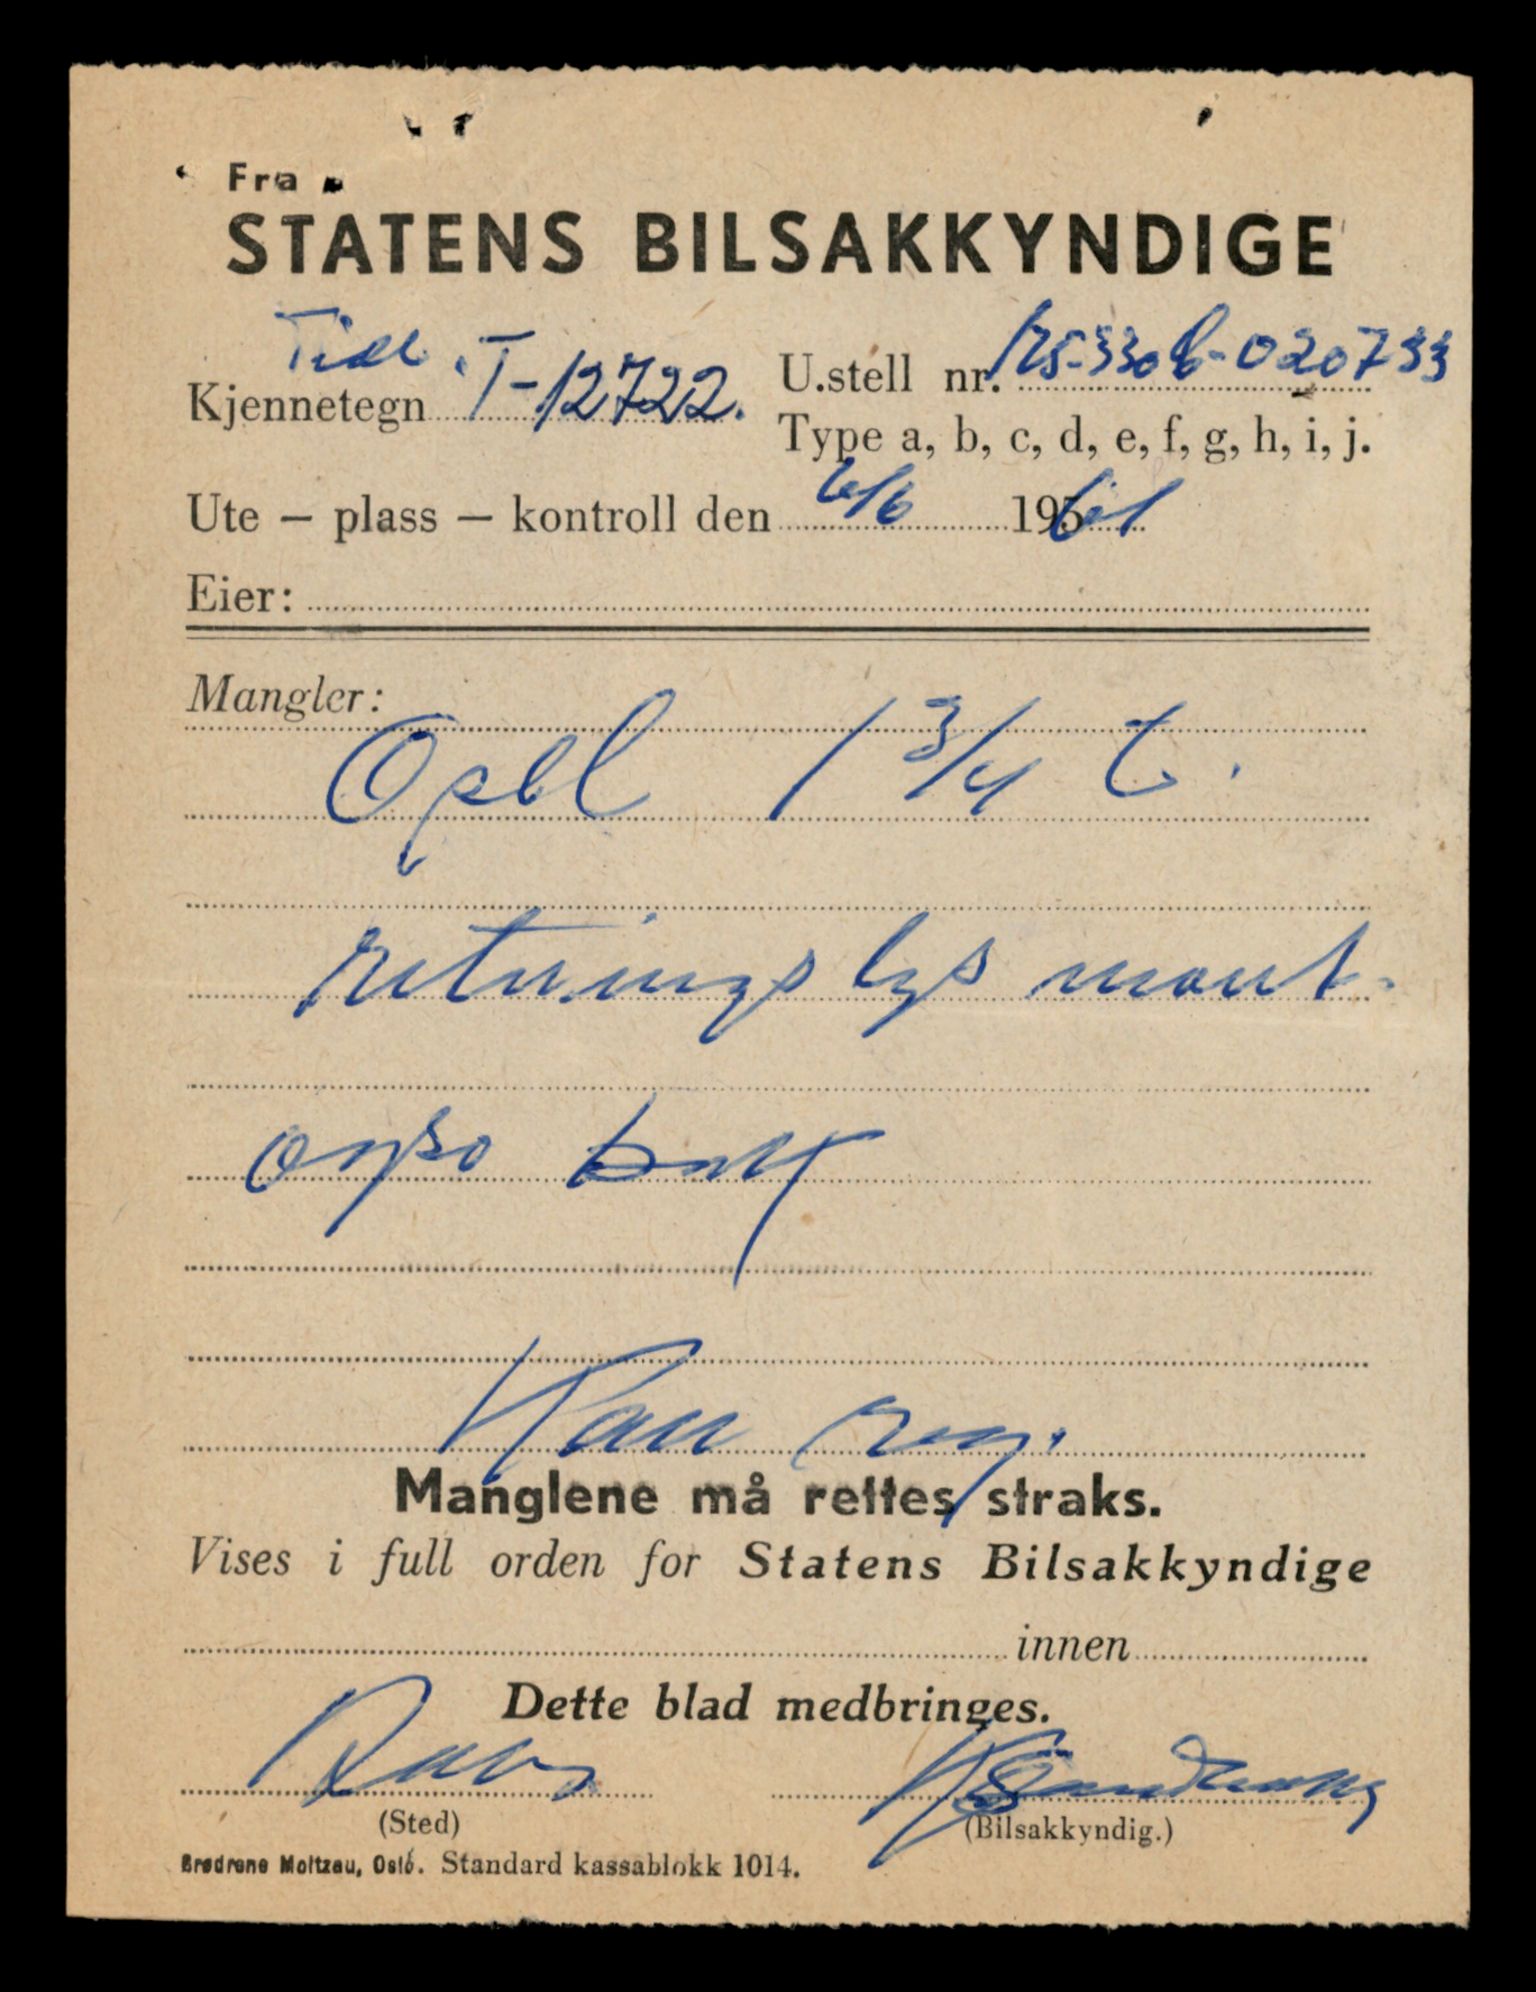 Fra
STATENS BILSAKKYNDIGE
Tidl.
Kjennetegn T-12722. U.stell nr. 175-330 6-020733
Type a, b, c, d, e, f, g, h, i, j.
Ute – plass – kontroll den 6/6 1961
Eier:
Mangler:
Opel 1 3/4 t.
retningslys mont.
også
Kan reg.
Manglene må rettes straks.
Vises i full orden for Statens Bilsakkyndige
innen
Dette blad medbringes.
(Sted)
(Bilsakkyndig.)
Brødrene Moltzau, Oslo. Standard kassablokk 1014.